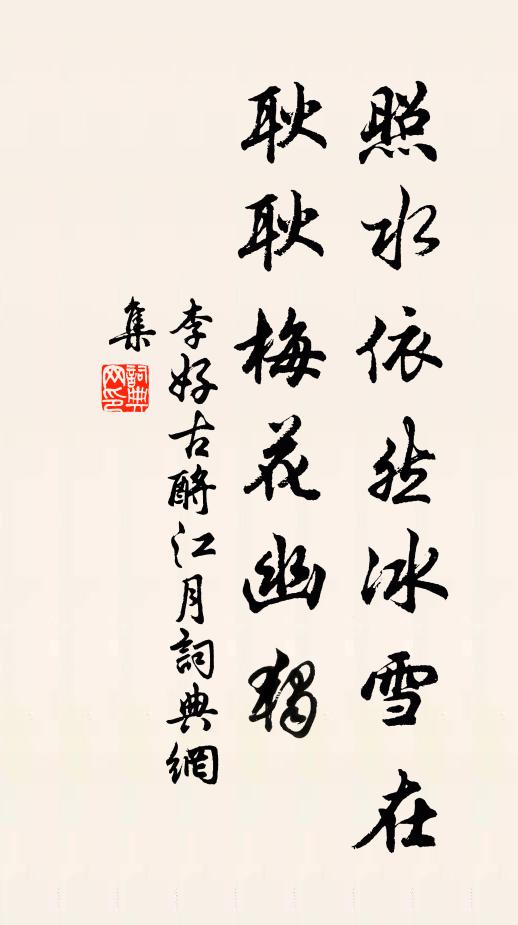 照水依然冰雪在
耿耿梅花幽獨
李好古酹江月詞典網
集
詞典網印